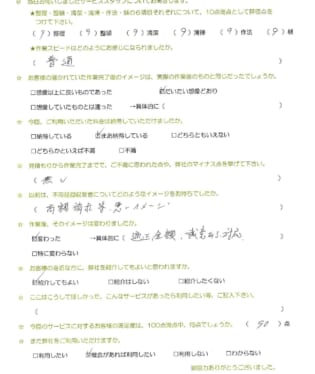 ★整理・整頓・清潔・清掃・作法・躾の６項目それぞれについて、１０点満点として評価点を
つけて下さい。
( 9 ) 整理 ( 9 ) 整頓 ( 9 ) 清潔 ( 9 ) 清掃 ( 9 ) 作法 ( 9 ) 躾
★作業スピードなどのようにお感じになられましたか。
( 普通 )
☆ お客様の描かれていた作業完了後のイメージは、実際の作業後のものと同じだったでしょうか。
□想像以上に良いものであった ☑だいたい想像どおり
□想像していたものとは違った →具体的に ( )
☆ 今回、ご利用いただいた料金は納得していただけましたか。
□納得している ☑まあ納得している □どちらともいえない
□どちらかといえば不満 □不満
☆ 見積もりから作業完了までで、ご不満に思われた点や、弊社のマイナス点を挙げて下さい。
( 無し )
☆ 以前は、不用品回収業者についてどのようなイメージをお持ちでしたか。
( 高額請求等、悪いイメージ )
☆ 作業後、そのイメージは変わりましたか。
☑変わった →具体的に ( 適正金額、 )
□特に変わらない
☆ お客様の身近な方に、弊社を紹介してもよいと思われますか。
☑紹介してもよい □紹介はしない □紹介したくない
☆ ここはこうしてほしかった、こんなサービスがあったら利用したい等、ご記入下さい。
( )
☆ 今回のサービスに対するお客様の満足度は、１００点満点中、何点でしょうか。 ( 90 ) 点
☆ また弊社をご利用いただけますか。
□利用したい ☑機会があれば利用したい □利用しない □わからない
御協力ありがとうございました。